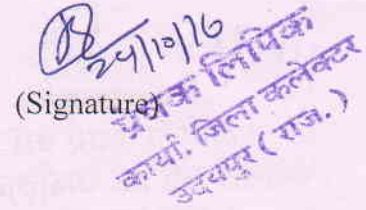 24/10/16
(Signature)
लिपिक
कार्या. जिला कलेक्टर
उदयपुर ( राज. )